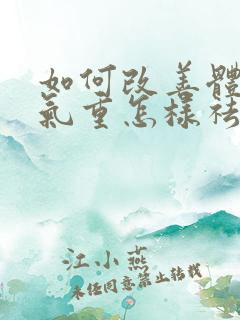 如何改善體
氣重怎樣祛
江小燕
未经同意禁止转载